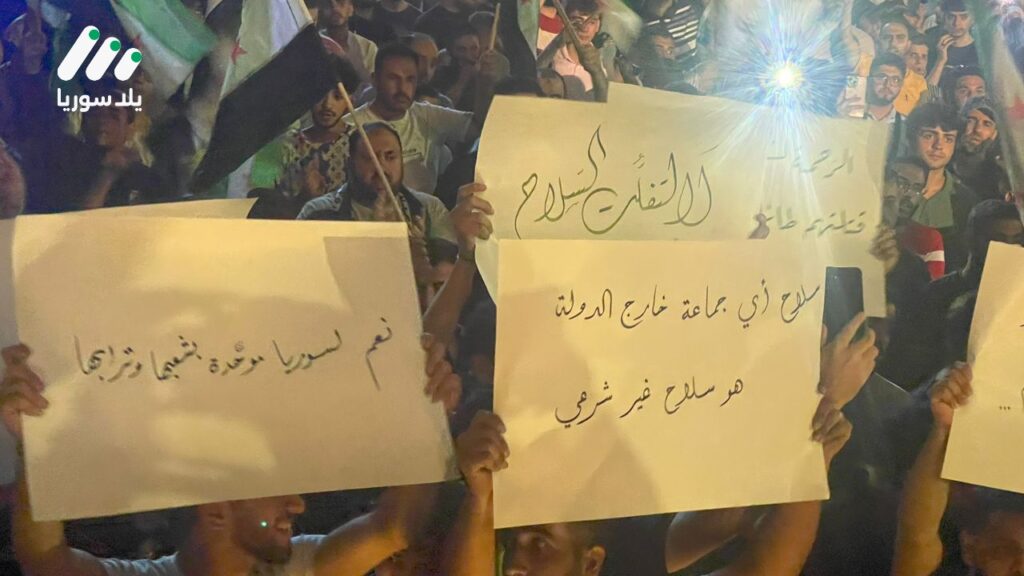 يلا سوريا
لا لتفلت السلاح
الرحمة
قتلتهم
سلاح أي جماعة خارج الدولة
هو سلاح غير شرعي
نعم لسوريا موحّدة بشعبها وترابها
...